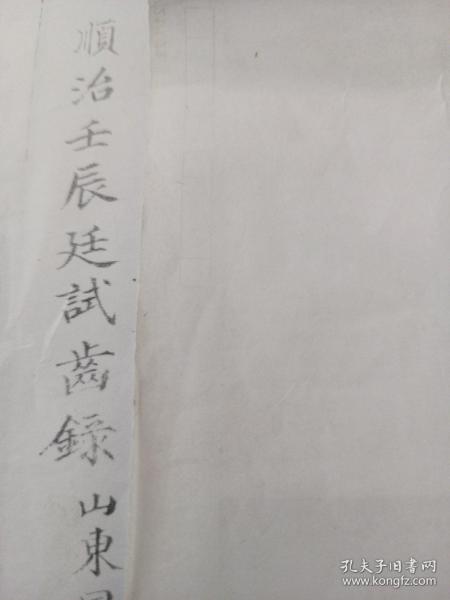 順治壬辰廷試齒錄 山東
孔夫子旧书网
www.kongfz.com